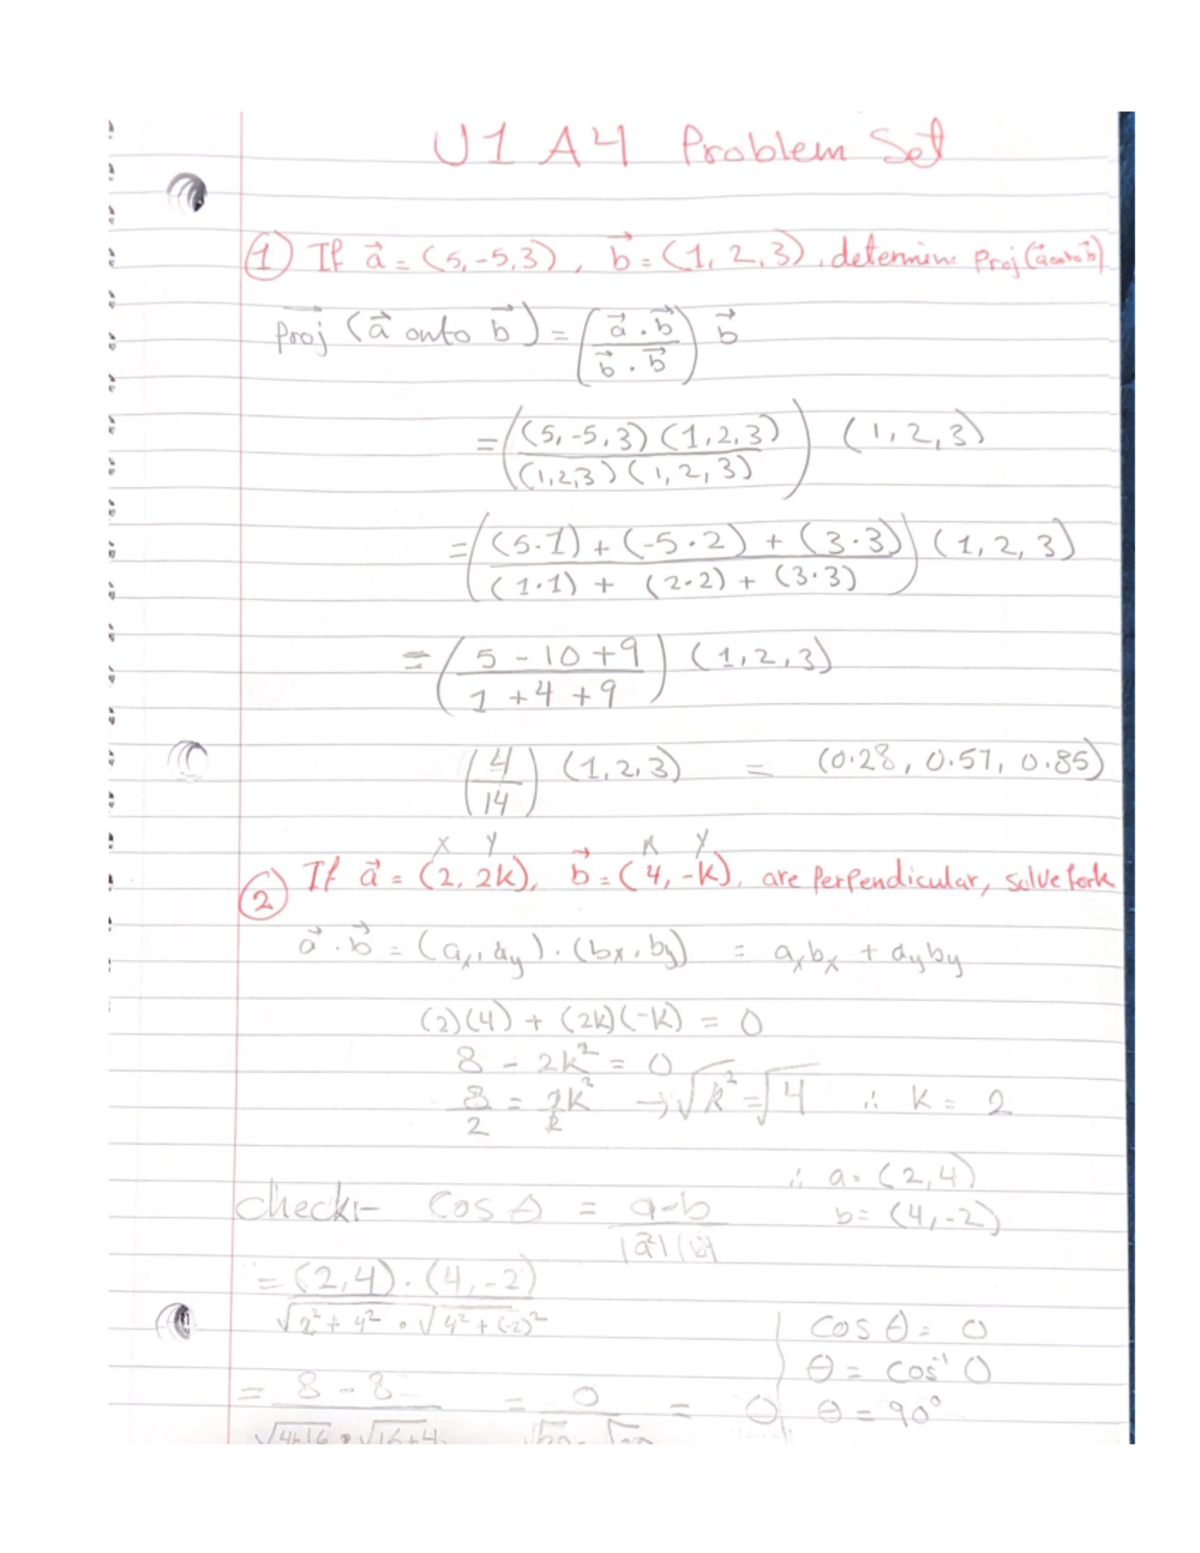 U1 A4 Problem Set
① If a⃗ = (5,-5,3), b⃗ = (1, 2, 3), determine Proj(a⃗ onto b⃗)
Proj (a⃗ onto b⃗) = (a⃗ · b⃗ / b⃗ · b⃗) b⃗
= ((5,-5,3)(1,2,3) / (1,2,3)(1,2,3)) (1,2,3)
= ((5·1) + (-5·2) + (3·3) / (1·1) + (2·2) + (3·3)) (1,2,3)
= (5 - 10 + 9 / 1 + 4 + 9) (1,2,3)
(4/14) (1,2,3) = (0.28, 0.57, 0.85)
x y x y
② If a⃗ = (2, 2k), b⃗ = (4, -k), are perpendicular, solve for k
a⃗ · b⃗ = (ax, ay) · (bx, by) = axbx + ayby
(2)(4) + (2k)(-k) = 0
8 - 2k² = 0
8/2 = 2k²/2 → √k² = √4 ∴ k = 2
∴ a = (2,4)
b = (4,-2)
Check:- Cos θ = a·b / |a⃗||b⃗|
= (2,4) · (4,-2) / √2² + 4² · √4² + (-2)²
= 8 - 8 / √4+16 · √16+4 = 0 / √20 · √20 = 0
Cos θ = 0
θ = cos⁻¹ 0
θ = 90°